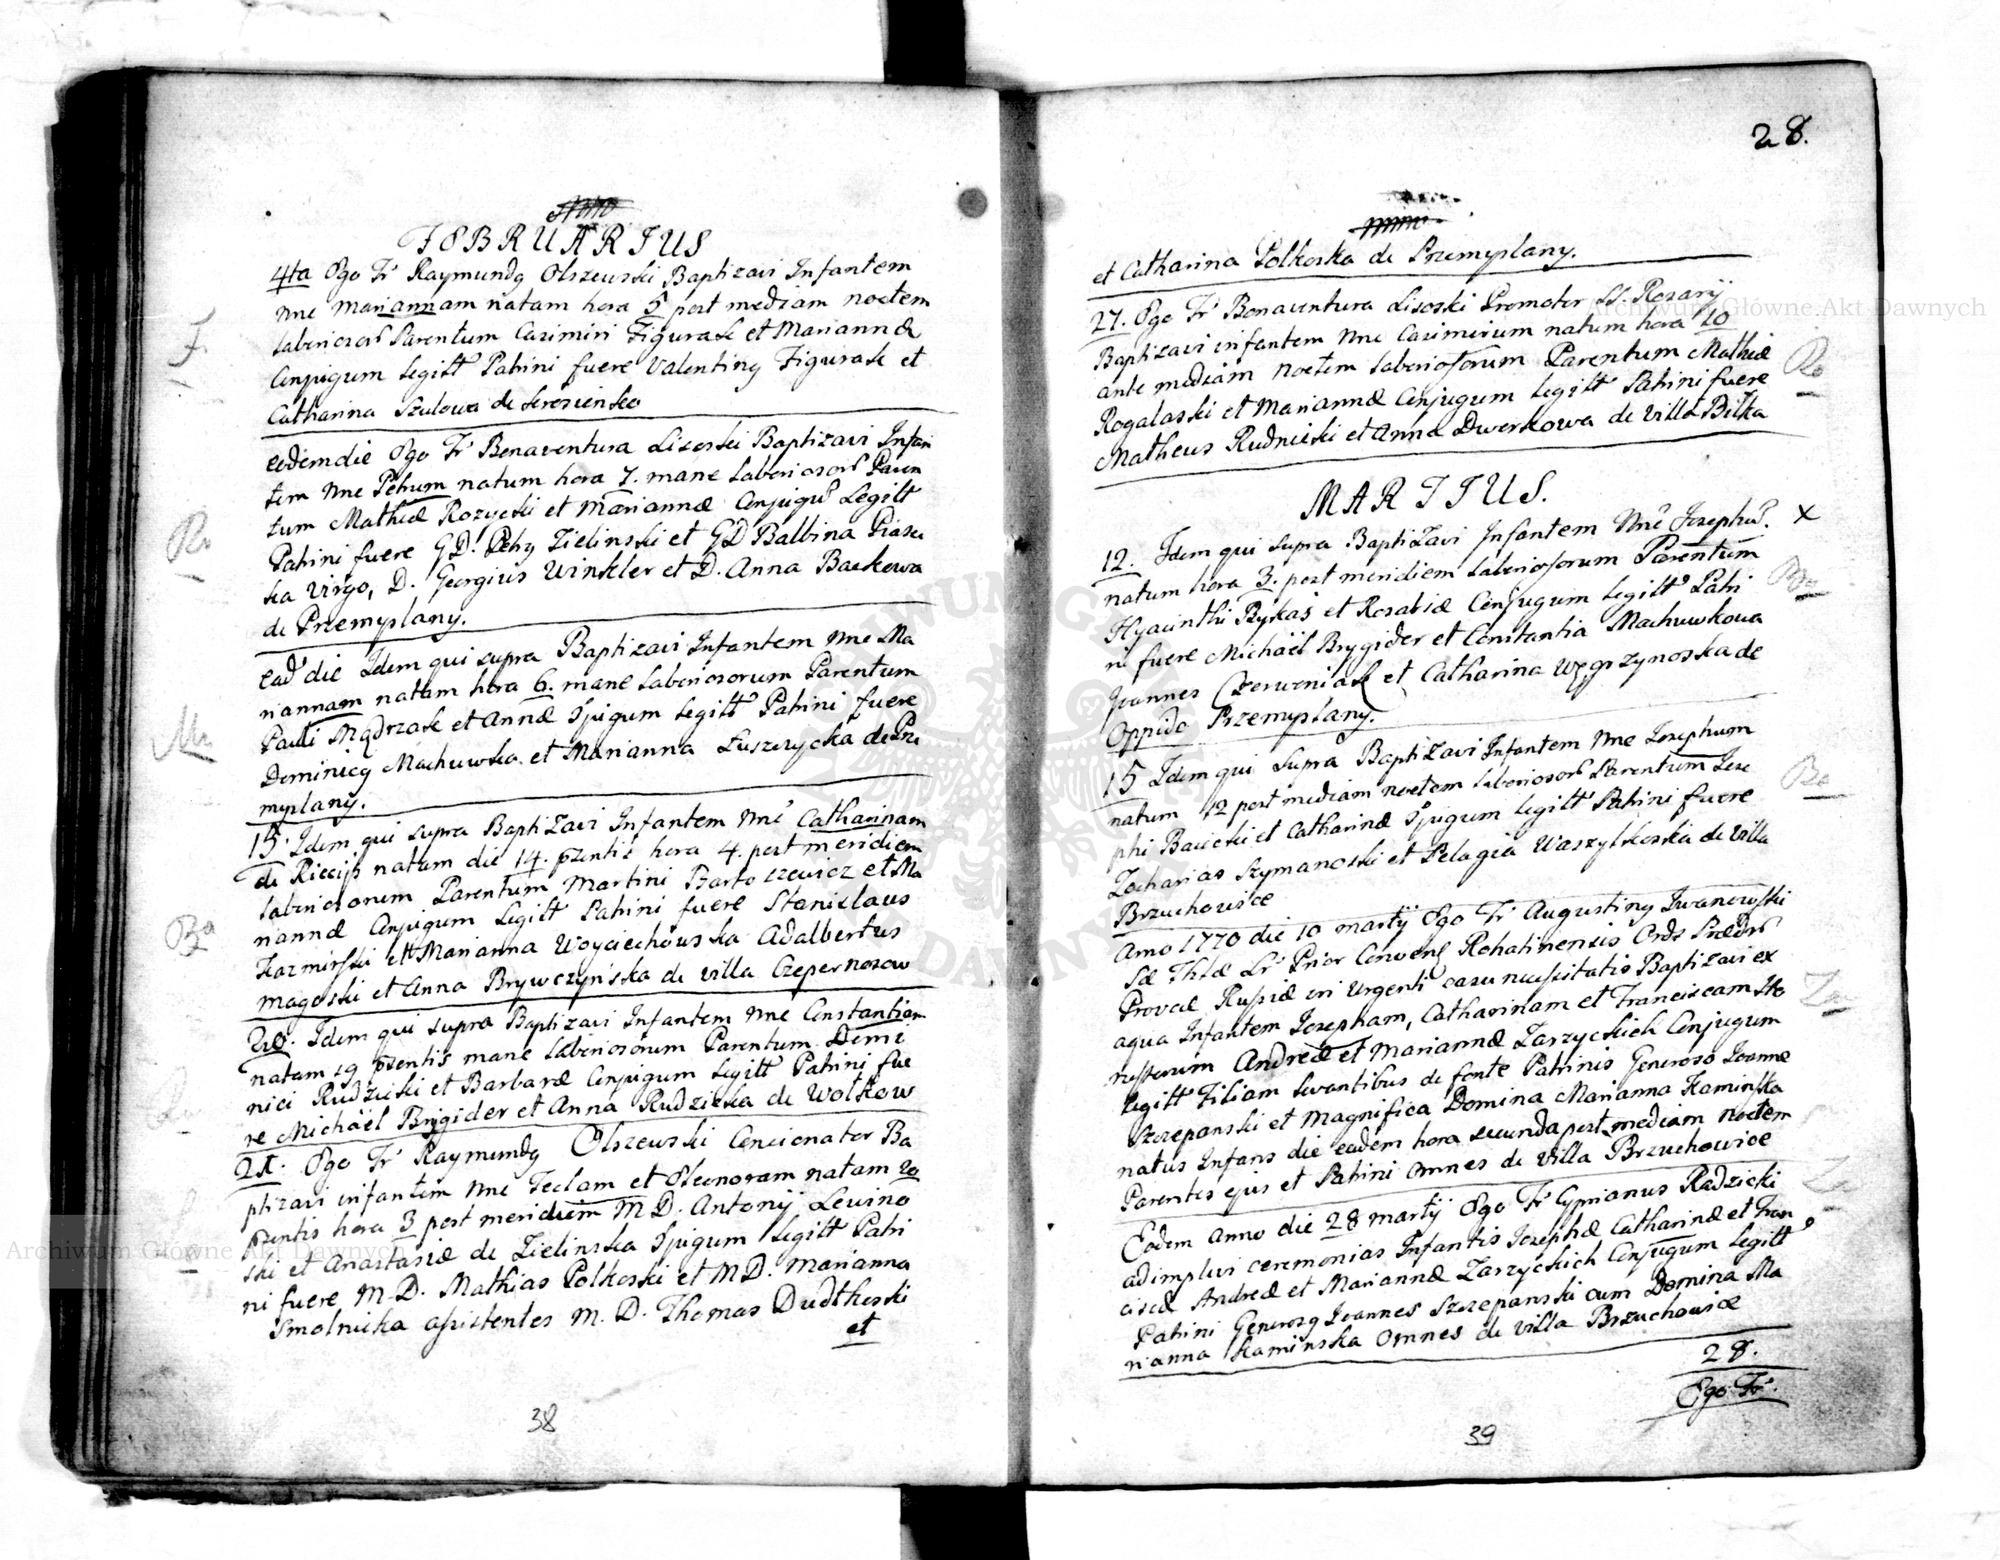 FEBRUARIUS
4ta Ego Fr Raymundq Olszewski Baptizavi Infantem
nne Mariannam natam hora 5 post mediam noctem
laboriosor Parentum Casimiri Figurask et Mariannæ
Conjugum legitt Patrini fuere Valentinq Figurask et
Catharina Szulowa de
eodem die Ego Fr Bonaventura Lisoski Baptizavi Infan
tem nne Petrum natum hora 7. mane laboriosor Paren
tum Mathiæ Rozycki et Mariannæ Conjugu Legitt
Patrini fuere GD. Petrq Zielinski et GD Balbina Piase
ska Virgo, D. Georgius Winkler et D. Anna Backowa
de Przemyslany.
ead die Idem qui supra Baptizavi Infantem nne Ma
riannam natam hora 6. mane laboriosorum Parentum
Pauli Mądrzak et Annæ Cjugum legitt Patrini fuere
Dominicq Machuwska et Marianna Łuszczycka de Prze
myslany.
15. Idem qui supra Baptizavi Infantem nne Catharinam
de Ricciis natam die 14. pzentis hora 4. post meridiem
laboriosorum Parentum Martini Bartoszewicz et Ma
riannæ Conjugum legitt Patrini fuere Stanislaus
Kazmirski et Marianna Woyciechowska Adalbertus
Magoski et Anna Brywczyńska de villa Czepernosow
20. Idem qui supra Baptizavi Infantem nne Constantiam
natam 19 pzentis mane laboriosorum Parentum Domi
nici Rudzicki et Barbaræ Conjugum legitt Patrini fue
re Michaël Brigider et Anna Rudzicka de Wolkow
21. Ego Fr Raymundq Olszewski Concionator Ba
ptizavi infantem nne Teclam et Eleonoram natam 20
pzentis hora 3 post meridiem M D. Antonij Levino
ski et Anastasiæ de Zielinska Cjugum legitt Patri
ni fuere M. D. Mathias Polkoski et M D. Marianna
Smolnicka asistentes M. D. Thomas Dudtkoski
et
38
28.
et Catharina Polkoska de Przemyslany.
27. Ego Fr Bonaventura Lisoski Promotor SS. Rosarij
Baptizavi infantem nne Casimirum natum hora 10
ante mediam noctem laboriosorum Parentum Mathiæ
Rogalaski et Mariannæ Conjugum legitt Patrini fuere
Matheus Rudnicki et Anna Dworkowa de villa Bilka
MARTIUS.
12. Idem qui supra Baptizavi Infantem nne Josephu. x
natum hora 3. post meridiem laboriosorum Parentum
Hyacinthi Rykas et Rosaliæ Conjugum legitt Patri
ni fuere Michaël Brygider et Constantia Machuwkowa
Joannes Czerweniak et Catharina Węgrzynoska de
Oppido Przemyslany.
15 Idem qui Supra Baptizavi Infantem nne Josephum
natum 12 post mediam noctem laboriosor Parentum Jose
phi Baiecki et Catharinæ Cjugum legitt Patrini fuere
Zacharias Szymanoski et Pelagia Waszylkoska de Villa
Brzuchowice
Anno 1770 die 10 martij Ego Fr Augustinq Iwanowski
Sæ Thlæ Lr Prior Convenq Rohatinensis Ords Prædr
Provcæ Russiæ in Urgenti casu necessitatis Baptizavi ex
aqua Infantem Josepham, Catharinam et Franciscam Ho
nestorum Andreæ et Mariannæ Zarzyckich Conjugum
legitt Filiam levantibus de fonte Patrinis Generoso Joanne
Szczepanski et Magnifica Domina Marianna Kaminska
natus Infans die eadem hora secunda post mediam noctem
Parentes ejus et Patrini omnes de villa Brzuchowice
Eodem Anno die 28 martij Ego Fr Cyprianus Radzicki
adimplevi ceremonias Infantis Josephæ Catharinæ et Fran
ciscæ Andreæ et Mariannæ Zarzyckich Conjugum legitt
Patrini Generosq Joannes Szczepanski cum Domina Ma
rianna Kaminska Omnes de villa Brzuchowice
28.
Ego Fr.
39